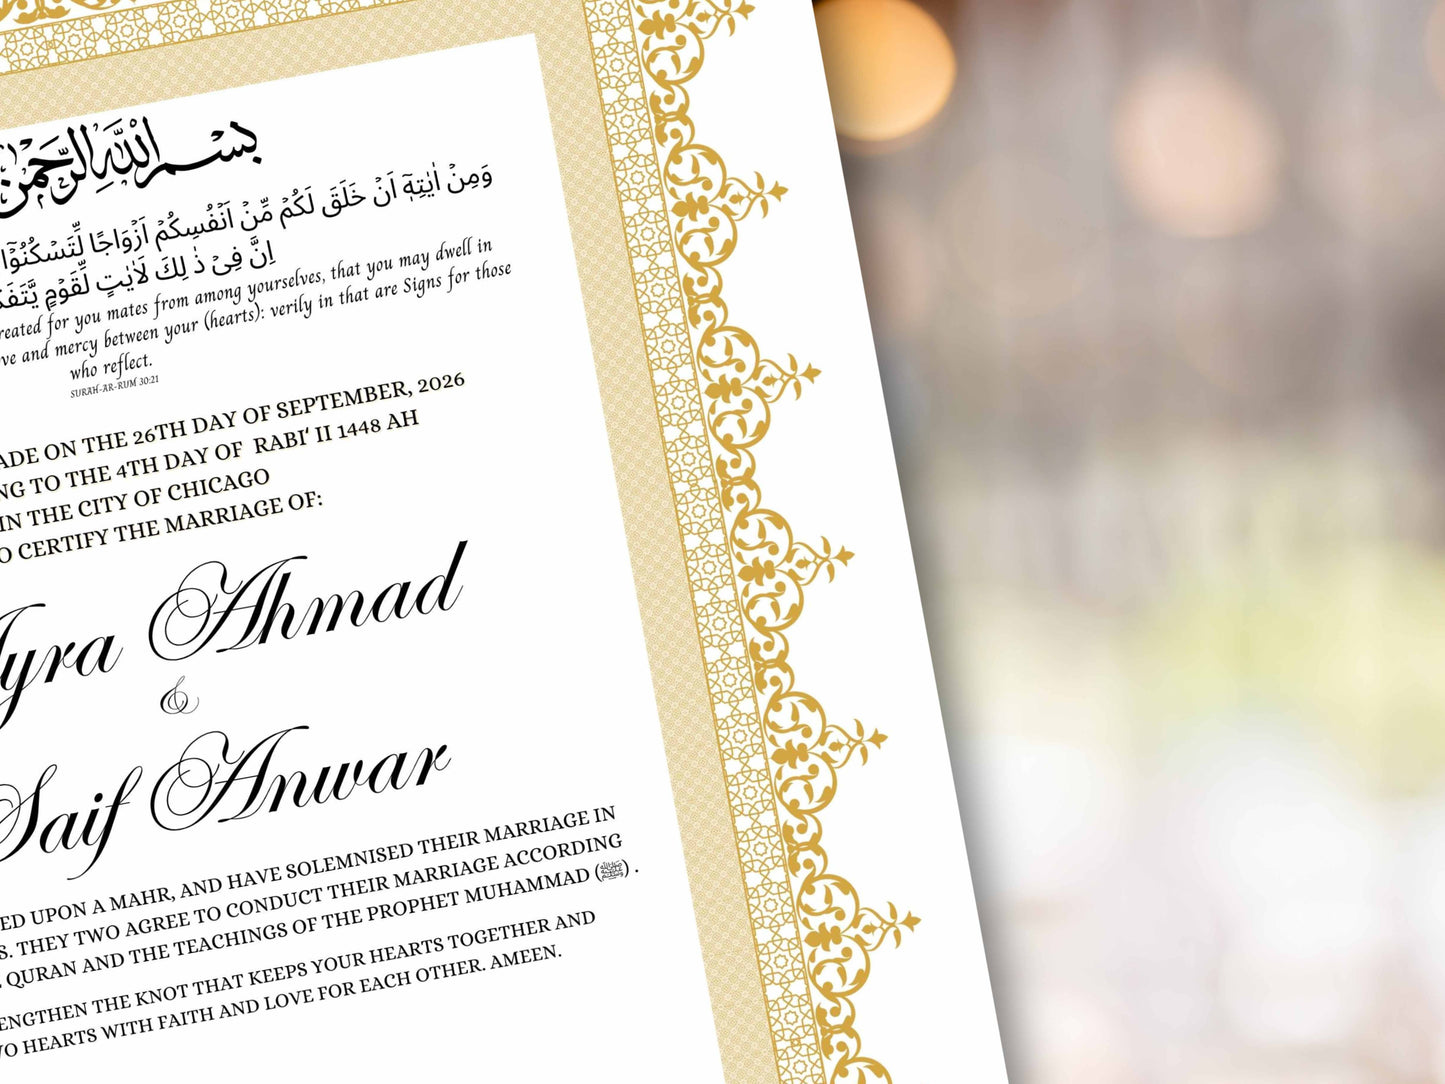 بسم الله الرحمن
وَمِنْ اٰيٰتِهٖٓ اَنْ خَلَقَ لَكُمْ مِّنْ اَنْفُسِكُمْ اَزْوَاجًا لِّتَسْكُنُوْٓا
اِنَّ فِيْ ذٰ لِكَ لَاٰيٰتٍ لِّقَوْمٍ يَّتَفَكَّ
reated for you mates from among yourselves, that you may dwell in
ve and mercy between your (hearts): verily in that are Signs for those
who reflect.
SURAH-AR-RUM 30:21
ADE ON THE 26TH DAY OF SEPTEMBER, 2026
NG TO THE 4TH DAY OF RABI' II 1448 AH
IN THE CITY OF CHICAGO
O CERTIFY THE MARRIAGE OF:
Iyra Ahmad
&
Saif Anwar
ED UPON A MAHR, AND HAVE SOLEMNISED THEIR MARRIAGE IN
S. THEY TWO AGREE TO CONDUCT THEIR MARRIAGE ACCORDING
QURAN AND THE TEACHINGS OF THE PROPHET MUHAMMAD (ﷺ) .
ENGTHEN THE KNOT THAT KEEPS YOUR HEARTS TOGETHER AND
WO HEARTS WITH FAITH AND LOVE FOR EACH OTHER. AMEEN.